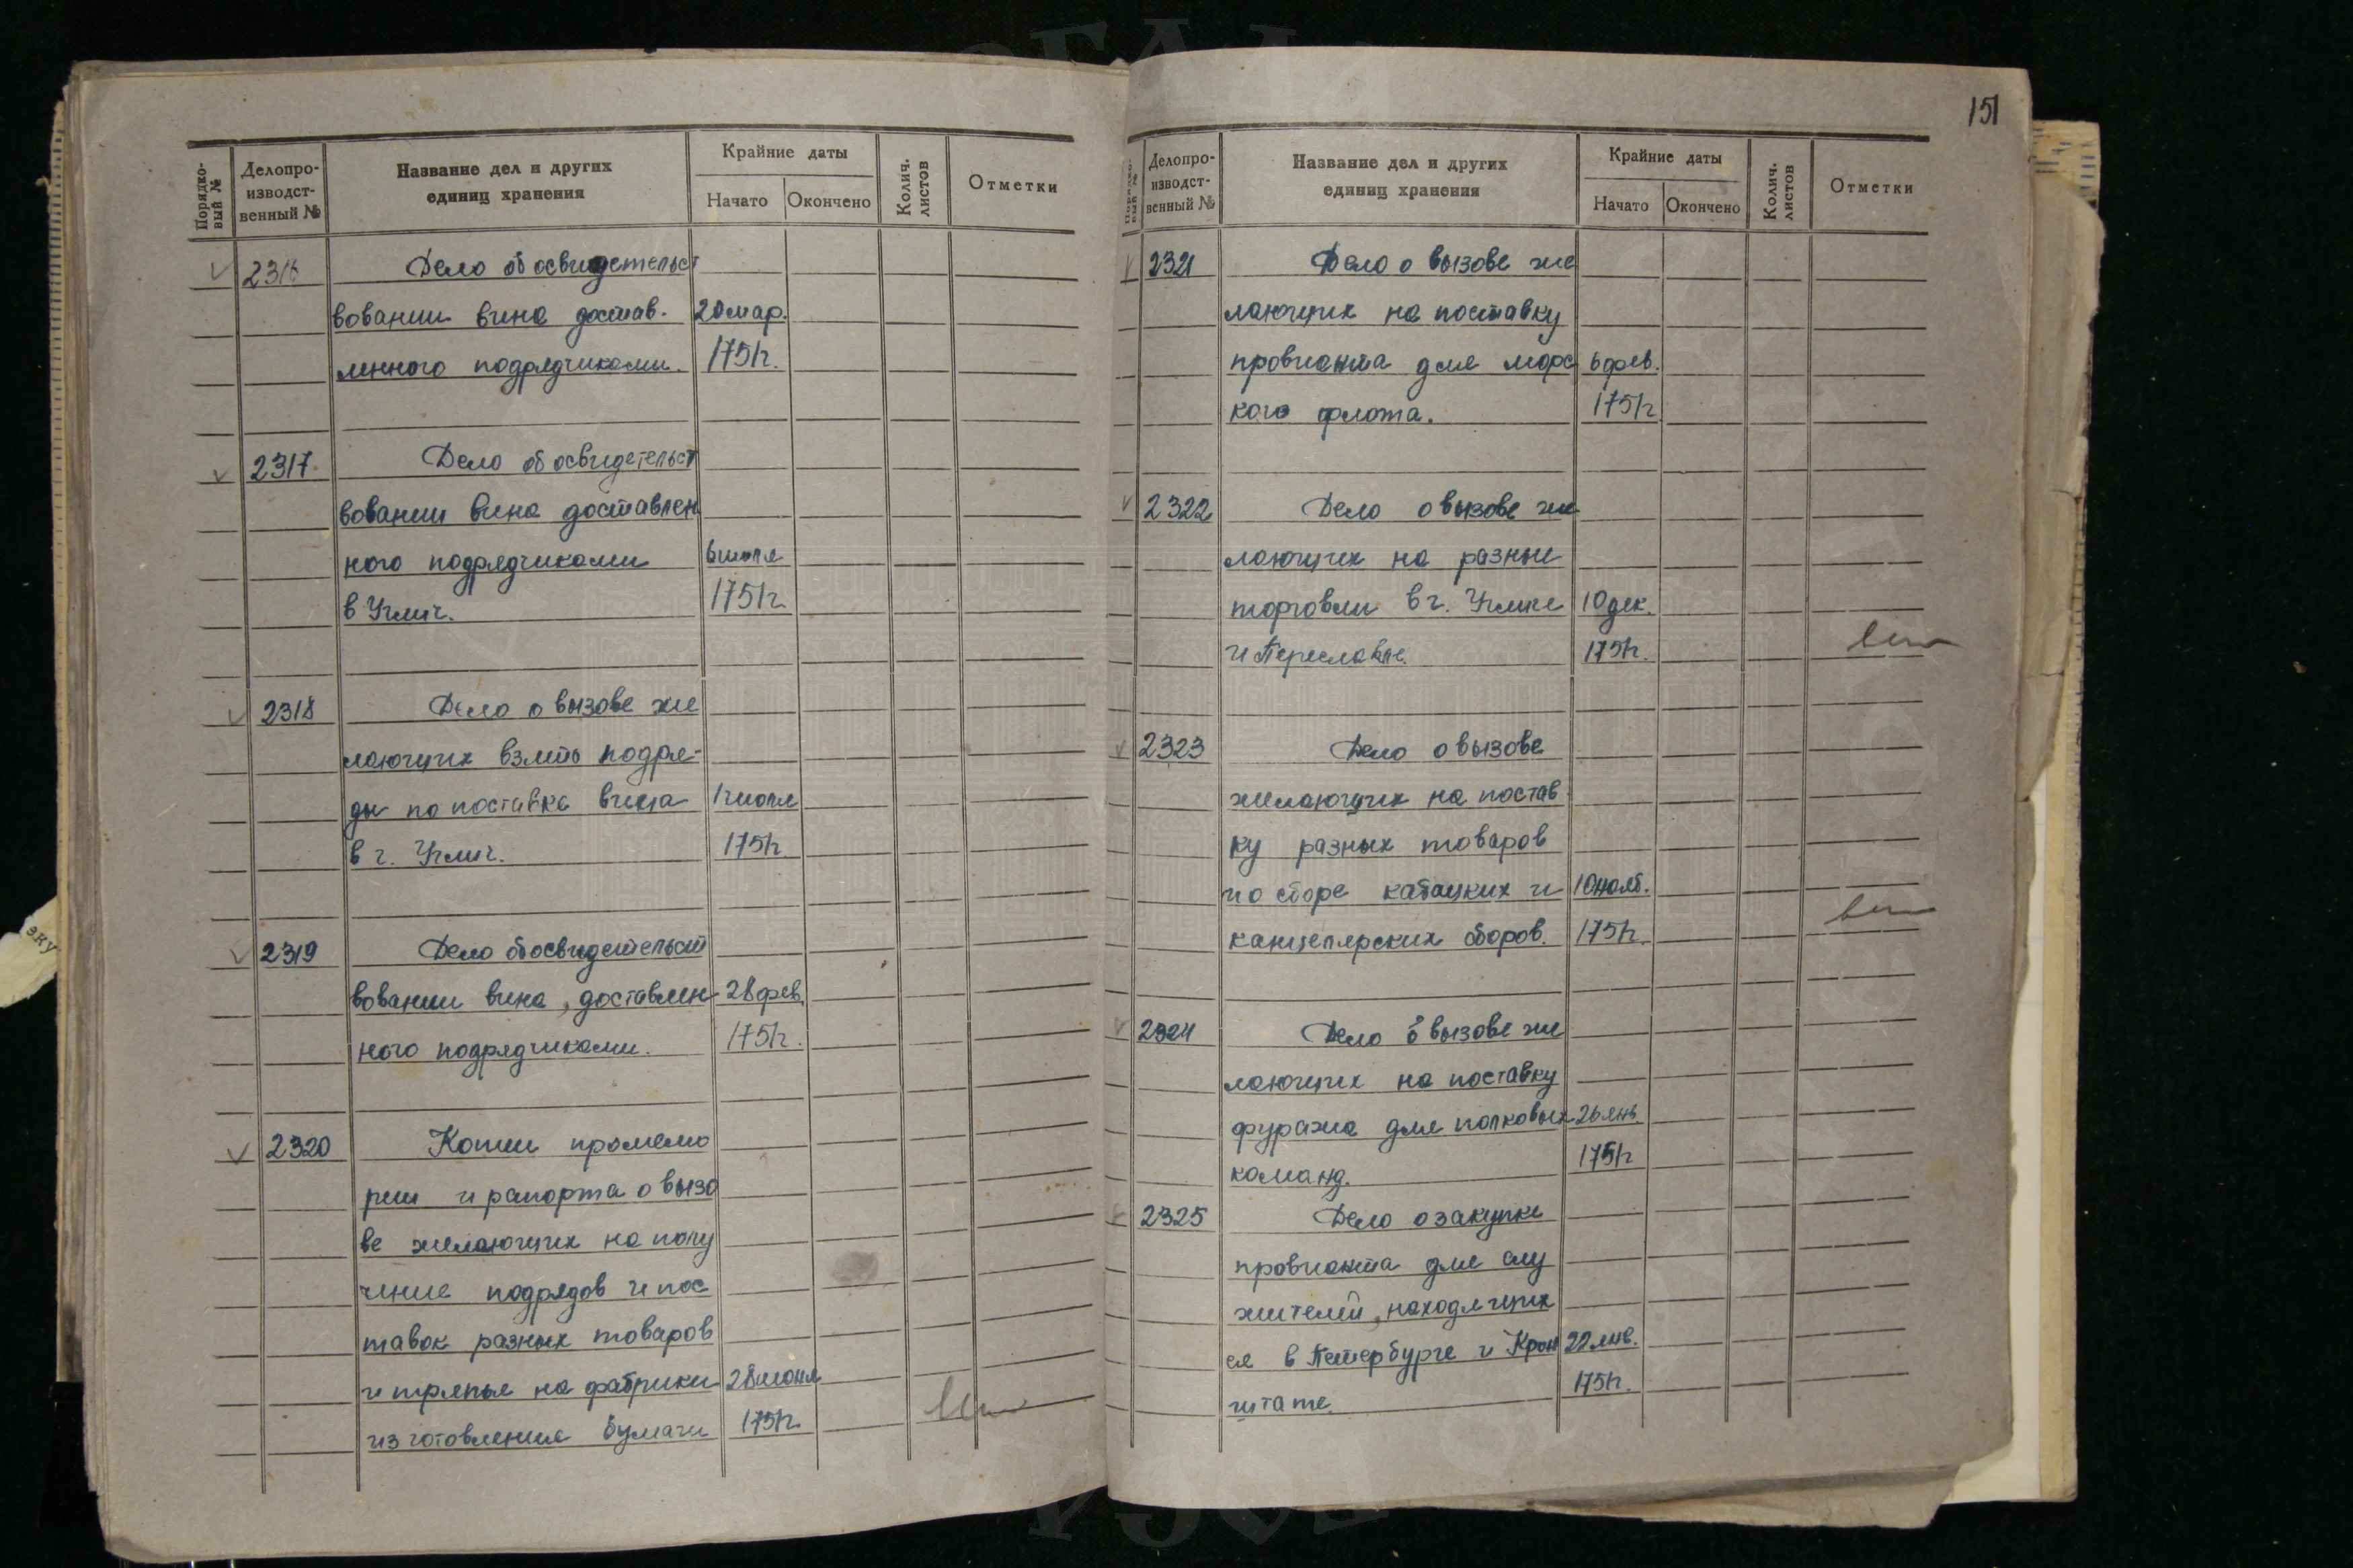 151
Порядко-
вый №
Делопро-
изводст-
венный №
Название дел и других
единиц хранения
Крайние даты
Начато
Окончено
Колич.
листов
Отметки
2316 Дело об освидетельст
вовании вина достав- 20 мар.
ленного подрядчиками. 1751г.
2317 Дело об освидетельст
вовании вина доставлен
ного подрядчиками 6 июля
в Углич. 1751г.
2318 Дело о вызове же
лающих взять подря-
ды по поставке вина 1 июля
в г. Углич. 1751г.
2319 Дело об освидетельст
вовании вина, доставлен 28 фев.
ного подрядчиками. 1751г.
2320 Копии промемо
рии и рапорта о вызо
ве желающих на полу
чение подрядов и пос
тавок разных товаров
и тряпья на фабрики 28 июня
изготовления бумаги 1751г.
Порядко-
вый №
Делопро-
изводст-
венный №
Название дел и других
единиц хранения
Крайние даты
Начато
Окончено
Колич.
листов
Отметки
2321 Дело о вызове же
лающих на поставку
провианта для морс 6 фев.
кого флота. 1751г
2322 Дело о вызове же
лающих на разные
торговли в г. Угличе 10 дек.
и Переславле. 1751г.
2323 Дело о вызове
желающих на постав
ку разных товаров
и о сборе кабацких и 10 нояб.
канцелярских сборов. 1751г.
2324 Дело о вызове же
лающих на поставку
фуража для полковых 26 янв.
команд. 1751г
2325 Дело о закупке
провианта для слу
жителей, находящих
ся в Петербурге и Крон 22 янв.
штате. 1751г.